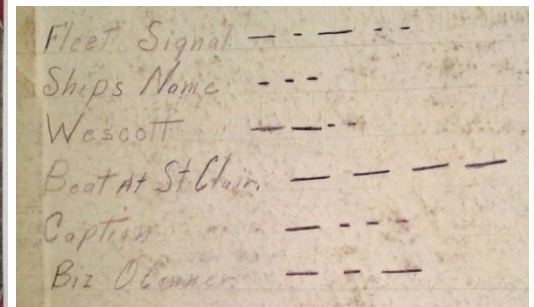 Fleet Signal — - — - -
Ships Name - - -
Wescott — — - -
Boat At St. Clair. — — — —
Caption — - - -
Biz O Conner. — - —